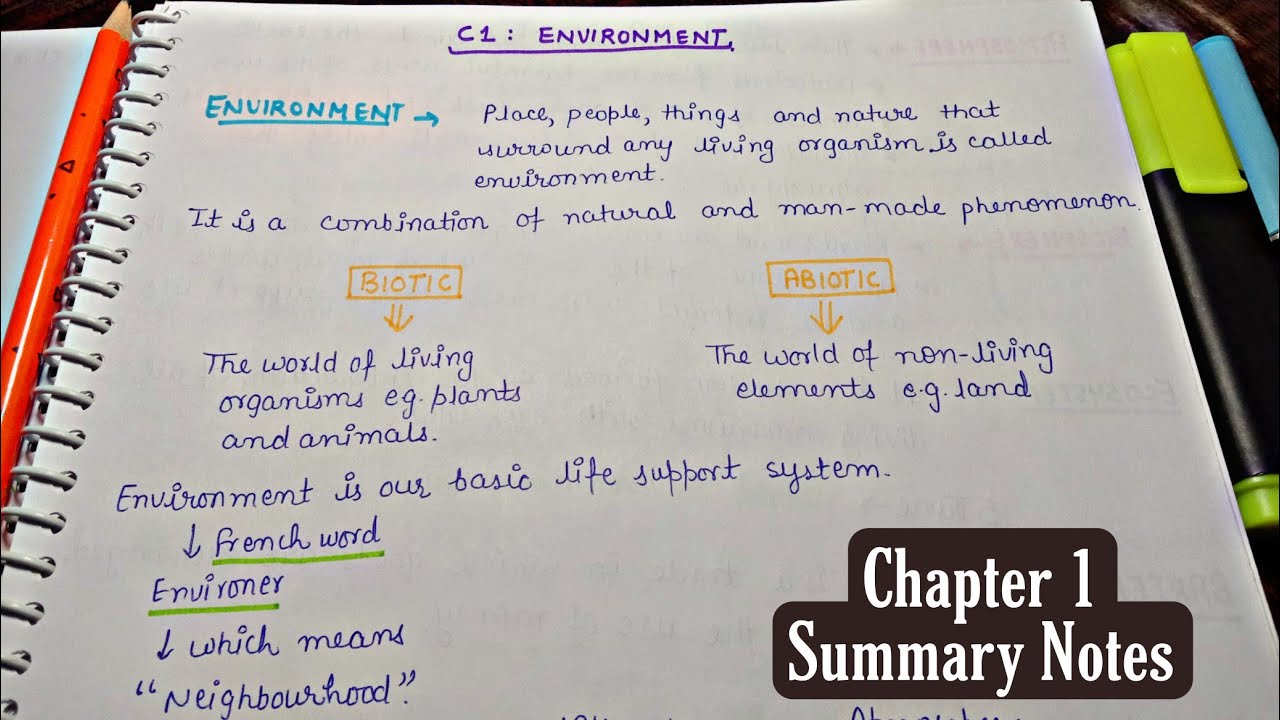 C1: ENVIRONMENT
ENVIRONMENT → Place, people, things and nature that
surround any living organism is called
environment.
It is a combination of natural and man-made phenomenon.
BIOTIC
ABIOTIC
The world of living
organisms eg. plants
and animals.
The world of non-living
elements e.g. land
Environment is our basic life support system.
↓ french word
Environer
↓ which means
"Neighbourhood".
Chapter 1
Summary Notes